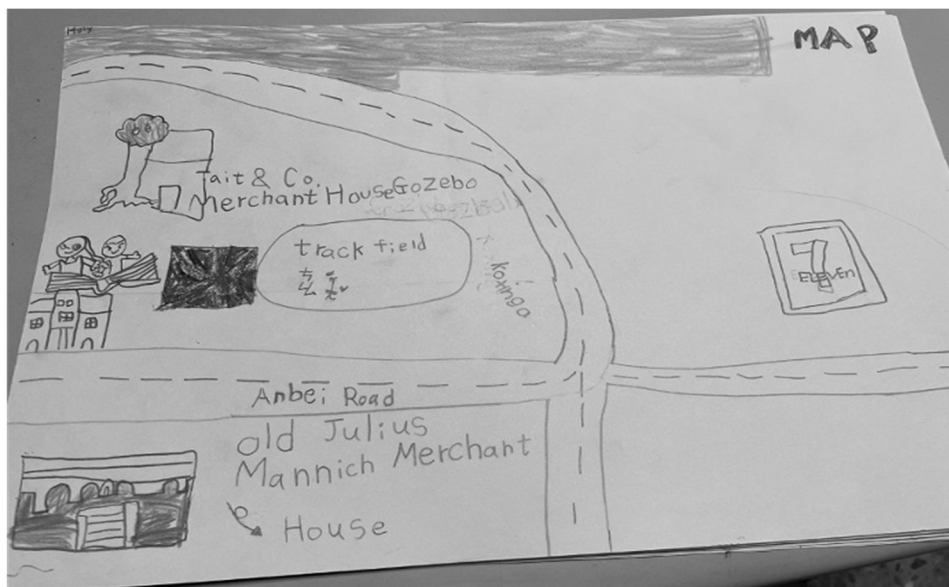 MAP
Tait & Co.
Merchant House Gozebo
track field
Koxinga
7
ELEVEn
Anbei Road
old Julius
Mannich Merchant
House